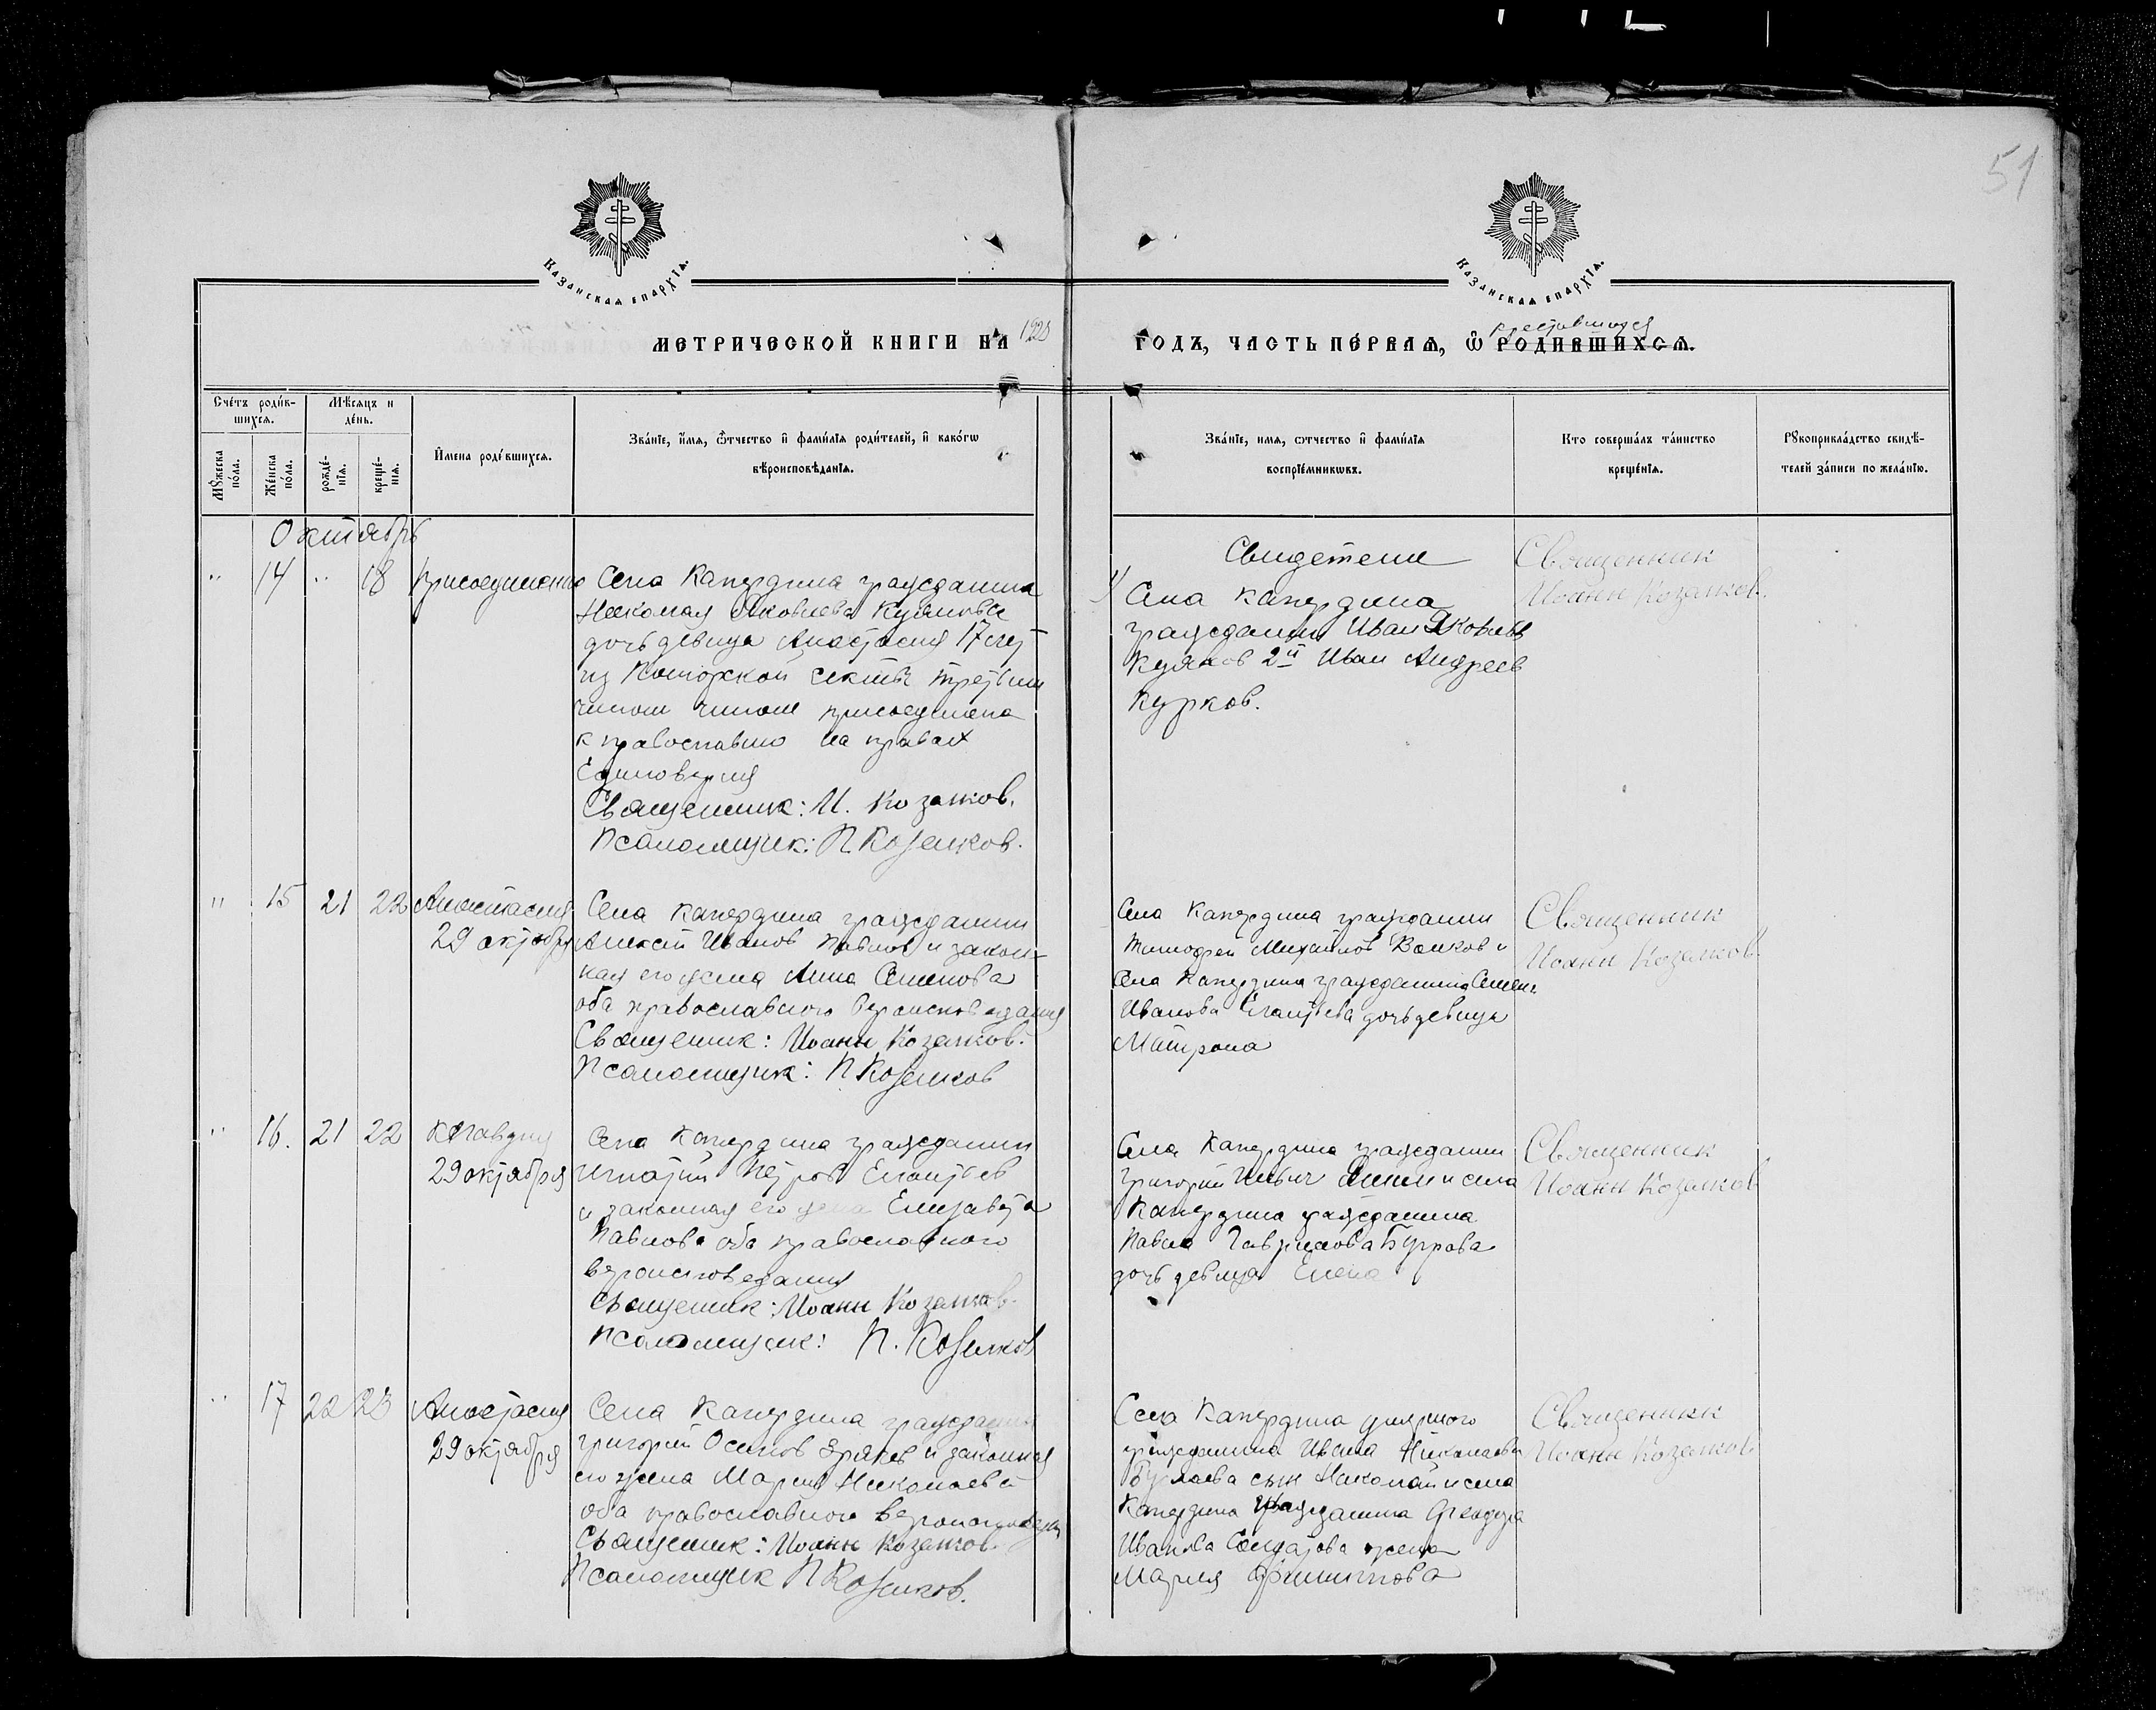 51
Казанская епархїа.
Казанская епархїа.
МЕТРИЧЕСКОЙ КНИГИ НА 1920
ГОДЪ, ЧАСТЬ ПЕРВАѦ, Ѡ РОДИВШИХСѦ.
крестившихся
Счетъ родив-
шихсѧ.
Мѣсѧцъ и
день.
Мꙋжеска
пола.
Женска
пола.
рожде-
нїѧ.
креще-
нїѧ.
Имена родившихсѧ.
Званїе, имѧ, ѿтчество и фамилїѧ родителей, и какогѡ
вѣроисповѣданїѧ.
Званїе, имѧ, ѿтчество и фамилїѧ
воспрїемникѡвъ.
Кто совершалъ таинство
крещенїѧ.
Рꙋкоприкладство свидѣ-
телей записи по желанїю.
Октябрь
" 14 " 18 Присоединение
Села Капердина гражданина
Николая Яковлева Кузякова
дочь девица Анастасия 17 лет
из Поморской секты третьим
чином чином присоединена
к православию на правах
Единоверия
Священник: И. Козанков.
Псаломщик: П Козанков.
Свидетели
1) Села Капердина
гражданин Иван Яковлев
Кузяков 2й Иван Андреев
Курков.
Священник
Иоанн Козанков.
" 15 21 22 Анастасия
29 октября
Села Капердина гражданин
Алексей Иванов Павлов и закон-
ная его жена Анна Семенова
оба православного вероисповедания
Священник: Иоанн Козанков.
Псаломщик: П Козанков
Села Капердина гражданин
Тимофей Михайлов Волков и
Села Капердина гражданина Семена
Иванова Елантьева дочь девица
Матрона
Священник
Иоанн Козанков.
" 16. 21 22 Клавдия
29 октября
Села Капердина гражданин
Игнатий Петров Елантьев
и законная его жена Елизавета
Павлова оба православного
вероисповедания
Священник: Иоанн Козанков.
Псаломщик: П. Козанков
Села Капердина гражданин
Григорий Ильич и села
Капердина гражданина
Павла Гаврилова Бугрова
дочь девица Елена
Священник
Иоанн Козанков
" 17 22 23 Анастасия
29 октября
Села Капердина гражданин
Григорий Осипов Зряков и законная
его жена Мария Николаева
оба православного вероисповедания
Священник: Иоанн Козанков.
Псаломщик П Козанков.
Села Капердина
гражданина Ивана Николаева
Бурлаева сын Николай и села
Капердина гражданина Феодора
Иванова Солдатова жена
Мария Филиппова
Священник
Иоанн Козанков